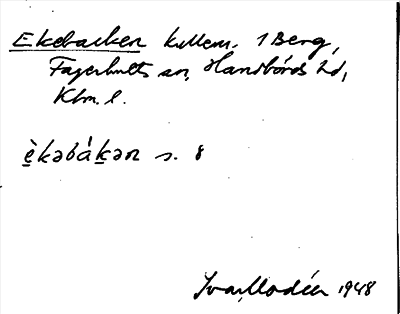 Ekebacken k.llem. 1 Berg,
Fagerhults sn, Handbörds hd,
Klm. l.
èkəbákən s. 8
Ivar Modéer 1948